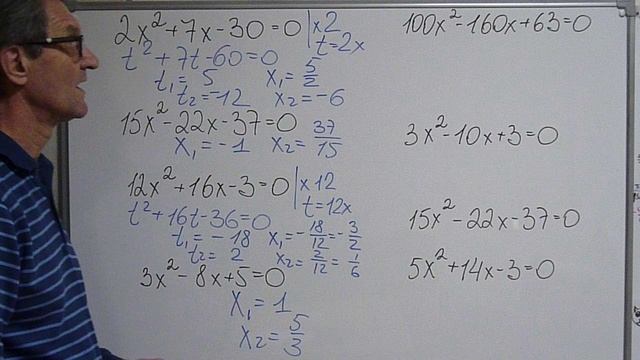 2x² + 7x - 30 = 0 | x2
t² + 7t - 60 = 0 t = 2x
t₁ = 5 x₁ = 5/2
t₂ = -12 x₂ = -6
15x² - 22x - 37 = 0
x₁ = -1 x₂ = 37/15
12x² + 16x - 3 = 0 | x12
t² + 16t - 36 = 0 t = 12x
t₁ = -18 x₁ = -18/12 = -3/2
t₂ = 2 x₂ = 2/12 = 1/6
3x² - 8x + 5 = 0
x₁ = 1
x₂ = 5/3
100x² - 160x + 63 = 0
3x² - 10x + 3 = 0
15x² - 22x - 37 = 0
5x² + 14x - 3 = 0